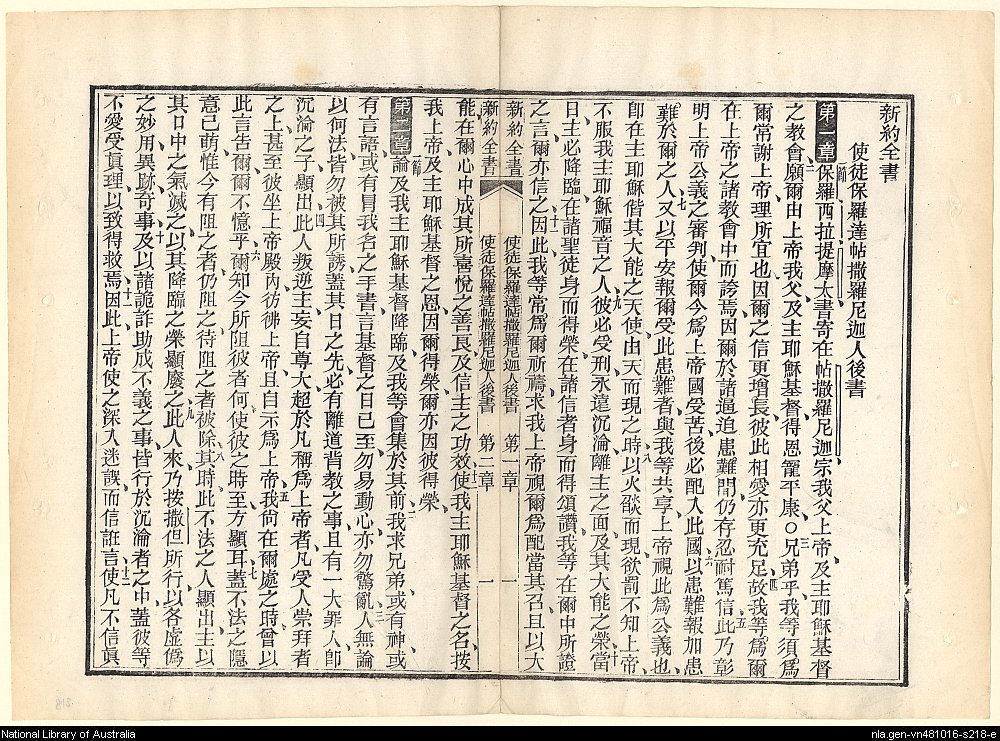 新約全書
使徒保羅達帖撒羅尼迦人後書
第一章 一節 保羅西拉提摩太書寄在帖撒羅尼迦宗我父上帝及主耶穌基督
之教會二願爾由上帝我父及主耶穌基督得恩寵平康〇三兄弟乎我等須爲
爾常謝上帝理所宜也因爾之信更增長彼此相愛亦更充足四故我等爲爾
在上帝之諸教會中而誇焉因爾於諸逼迫患難間仍存忍耐篤信五此乃彰
明上帝公義之審判使爾今爲上帝國受苦後必配入此國六以患難報加患
難於爾之人七又以平安報爾受此患難者與我等共享上帝視此爲公義也八
卽在主耶穌偕其大能之天使由天而現之時以火燄而現欲罰不知上帝
不服我主耶穌福音之人九彼必受刑永遠沉淪離主之面及其大能之榮十當
日主必降臨在諸聖徒身而得榮在諸信者身而得頌讚我等在爾中所證
之言爾亦信之十一因此我等常爲爾祈禱求我上帝視爾爲配當其召且以大
新約全書 使徒保羅達帖撒羅尼迦人後書 第一章 一
新約全書 使徒保羅達帖撒羅尼迦人後書 第二章 一
能在爾心中成其所喜悅之善良及信主之功效十二使我主耶穌基督之名按
我上帝及主耶穌基督之恩因爾得榮爾亦因彼得榮
第二章 一節 論及我主耶穌基督降臨及我等會集於其前二我求兄弟或有神或
有言語或有冒我名之手書言基督之日已至勿易動心亦勿驚亂三人無論
以何法皆勿被其所誘蓋其日之先必有離道背教之事且有一大罪人卽
沉淪之子顯出四此人叛逆主妄自尊大超於凡稱爲上帝者凡受人崇拜者
之上甚至彼坐上帝殿內彷彿上帝且自示爲上帝五我尚在爾處之時曾以
此言告爾爾不憶乎六爾知今所阻彼者何使彼之時至方顯耳七蓋不法之隱
意已萌惟今有阻之者仍阻之待阻之者被除八其時此不法之人顯出主以
其口中之氣滅之以其降臨之榮顯廢之九此人來乃按撒但所行以各虛僞
之妙用異跡奇事十及以諸詭詐助成不義之事皆行於沉淪者之中蓋彼等
不愛受眞理以致得救焉十一因此上帝使之深入迷誤而信誑言十二使凡不信眞
National Library of Australia
nla.gen-vn481016-s218-e